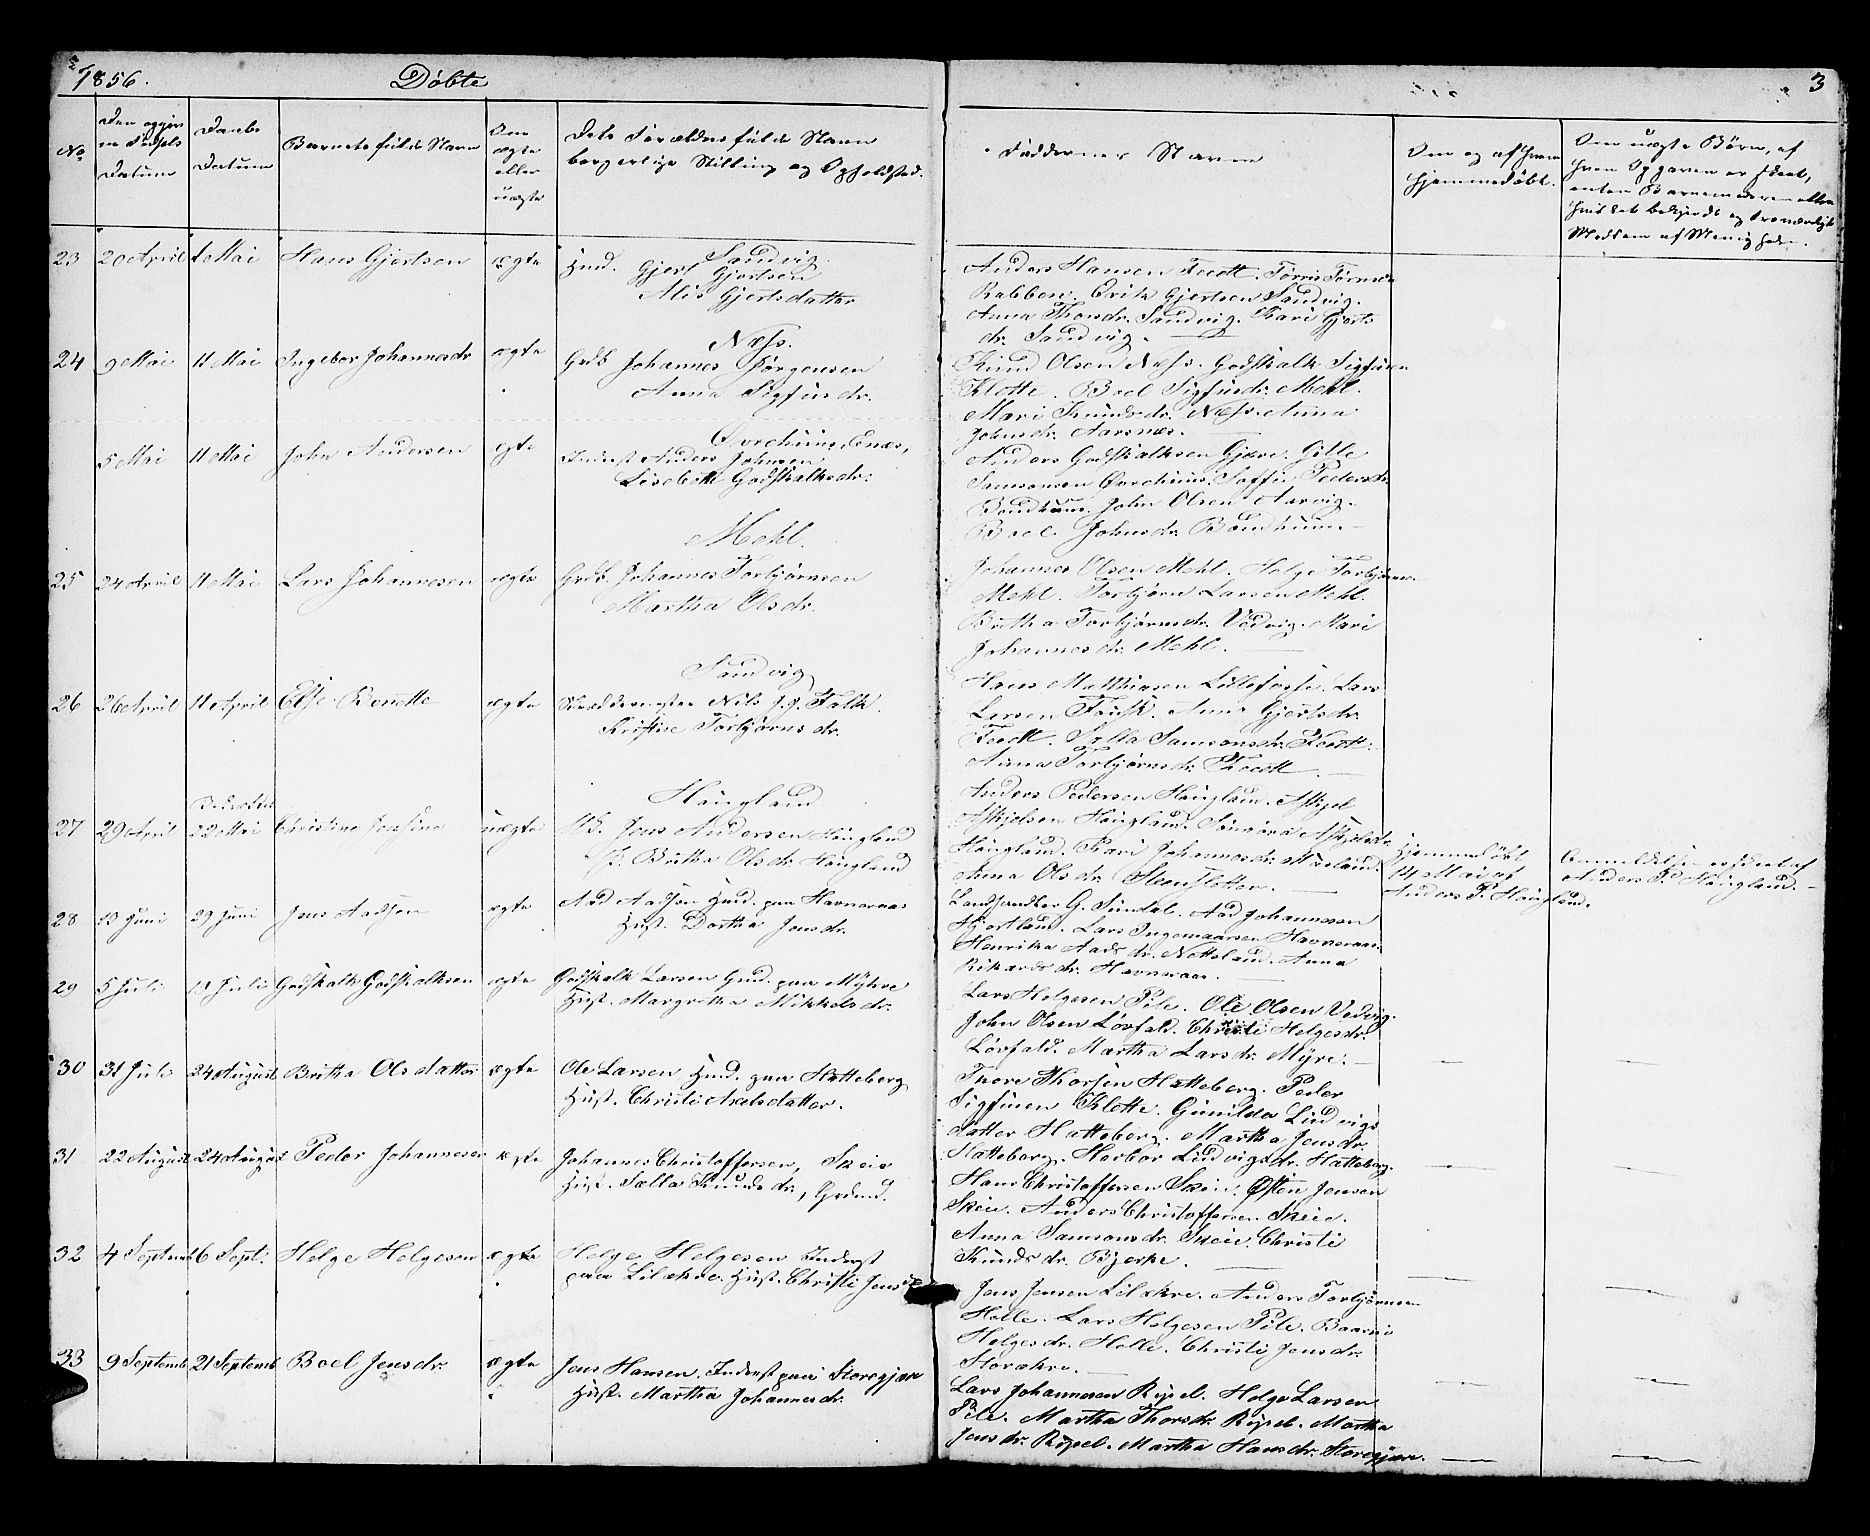 1856. Døbte
3
No
Den opgivne Fødsels Datum
Daabs Datum
Barnets fulde Navn
Om ægte eller uægte
Dets Forældres fulde Navn
borgerlige Stilling og Opholdsted.
Faddernes Navne
Om og af hvem
hjemmedøbt.
Om uægte Børn, af
hvem Opgaven er skeet,
enten Barnemoderen eller
hvis det bekjendt og troværdigt
Medlem af Menigheden.
23 20 April 1 Mai Hans Gjertsen ægte Huusmd. Sandvig.
Gjert Gjertsen
Gjertsdatter
Anders Hansen Tveott. Tørris
Rabben. Gjertsen Sandvig.
Anna Thorsdr. Sandvig. Kari Gjerts
dr. Sandvig.
24 9 Mai 11 Mai Ingebor Johannesdr ægte Næss.
Grdb. Johannes Jørgensen
Anna Sigfusdr.
Knud Olsen Næss. Godskalk Sigfusen
Klotte. Boel Sigfusdr. Mehl.
Mari Knudsdr. Næss. Anna
Johnsdr. Aarsnes.
5 Mai 11 Mai John Andersen ægte
Inderst Anders Johnsen
Lisebette Godskalksdr.
Anders Godskalksen Gjære. Gille
Samsonsen Soffi Pedersdr.
Bondhuus. John Olsen Aarvig.
Boel Johnsdr. Bondhuus.
25 24 April 11 Mai Lars Johannesen ægte Mehl.
Grdb. Johannes Torbjørnsen
Martha Olsdr.
Johannes Olsen Mehl. Helge Torbjørnsen
Mehl. Torbjørn Larsen Mehl.
Britha Torbjørnsdr. Vedvig. Mari
Johannesdr. Mehl.
26 26 April 11 April Else Bonette ægte Sandvig
Skræddermester Nils J. J. Falk.
Kristine Torbjørnsdr.
Hans Matthiasen Lillefosse. Lars
Larsen Fousk. Anna Gjertsdr.
Tveott. Sella Samsonsdr. Tveott.
Anna Torbjørnsdr. Tveott.
27 29 April 22 Mai Christine Josefine uægte Haugland
Uf. Jens Andersen Haugland
P. Britha Olsdr. Haugland
Anders Pedersen Haugland. Askjel
Askjelsen Haugland. Askjelsdr.
Haugland. Kari Johannesdr.
Anna Olsdr.
Hjemmedøbt
14 Mai af
Anders P. Haugland.
Anmeldelsen er skeet af
Anders P. Haugland.
28 13 Juni 29 Juni Jens Aadsen ægte Aad Aadsen Huusmd. paa Havneraas
Hust. Dortha Jensdr.
Landhandler G. Sundal. Aad Johannesen
Hjortland. Lars Ingemaarsen Havneraas.
Henrika Aadsdr. Netteland. Anna
Rikardsdr. Havneraas.
29 5 Juli 13 Juli Godskalk Godskalksen ægte Godskalk Larsen Gmd. paa Myhre
Hust. Margretha Mikkelsdr.
Lars Helgesen Pile. Ole Olsen Vedvig.
John Olsen Løvfald. Christi Helgesdr.
Løvfald. Martha Larsdr. Myre.
30 31 Juli 24 August Britha Olsdatter ægte Ole Larsen Huusmd. paa Hatteberg
Hust. Christi Axelsdatter.
Tore Thorsen Hatteberg. Peder
Sigfusen Klotte. Gunilda Ludvigs
datter Hatteberg. Martha Jensdr.
Hatteberg. Herbor Ludvigsdr. Hatteberg.
31 22 August 24 August Peder Johannesen ægte Johannes Christoffersen, Skeie
Hust. Sælla Knudsdr., Grdmd.
Hans Christoffersen Skeie. Østen Jensen
Skeie. Anders Christoffersen Skeie.
Anna Samsonsdr. Skeie. Christi
Knudsdr. Bjerke.
32 4 Septemb 6 Sept. Helge Helgesen ægte Helge Helgesen Inderst
paa Lilækre. Hust. Christi Jensdr
Jens Jensen Lilækre. Anders Torbjørnsen
Helle. Lars Helgesen Pile. Baarni
Helgesdr. Helle. Christi Jensdr.
Storækre.
33 9 Septemb 21 Septemb Boel Jensdr. ægte Jens Hansen. Inderst paa Storegjære
Hust. Martha Johannesdr.
Lars Johannesen Ripel. Helge Larsen
Pile. Martha Thorsdr. Ripel. Martha
Jensdr. Ripel. Martha Hansdr. Storegjære.